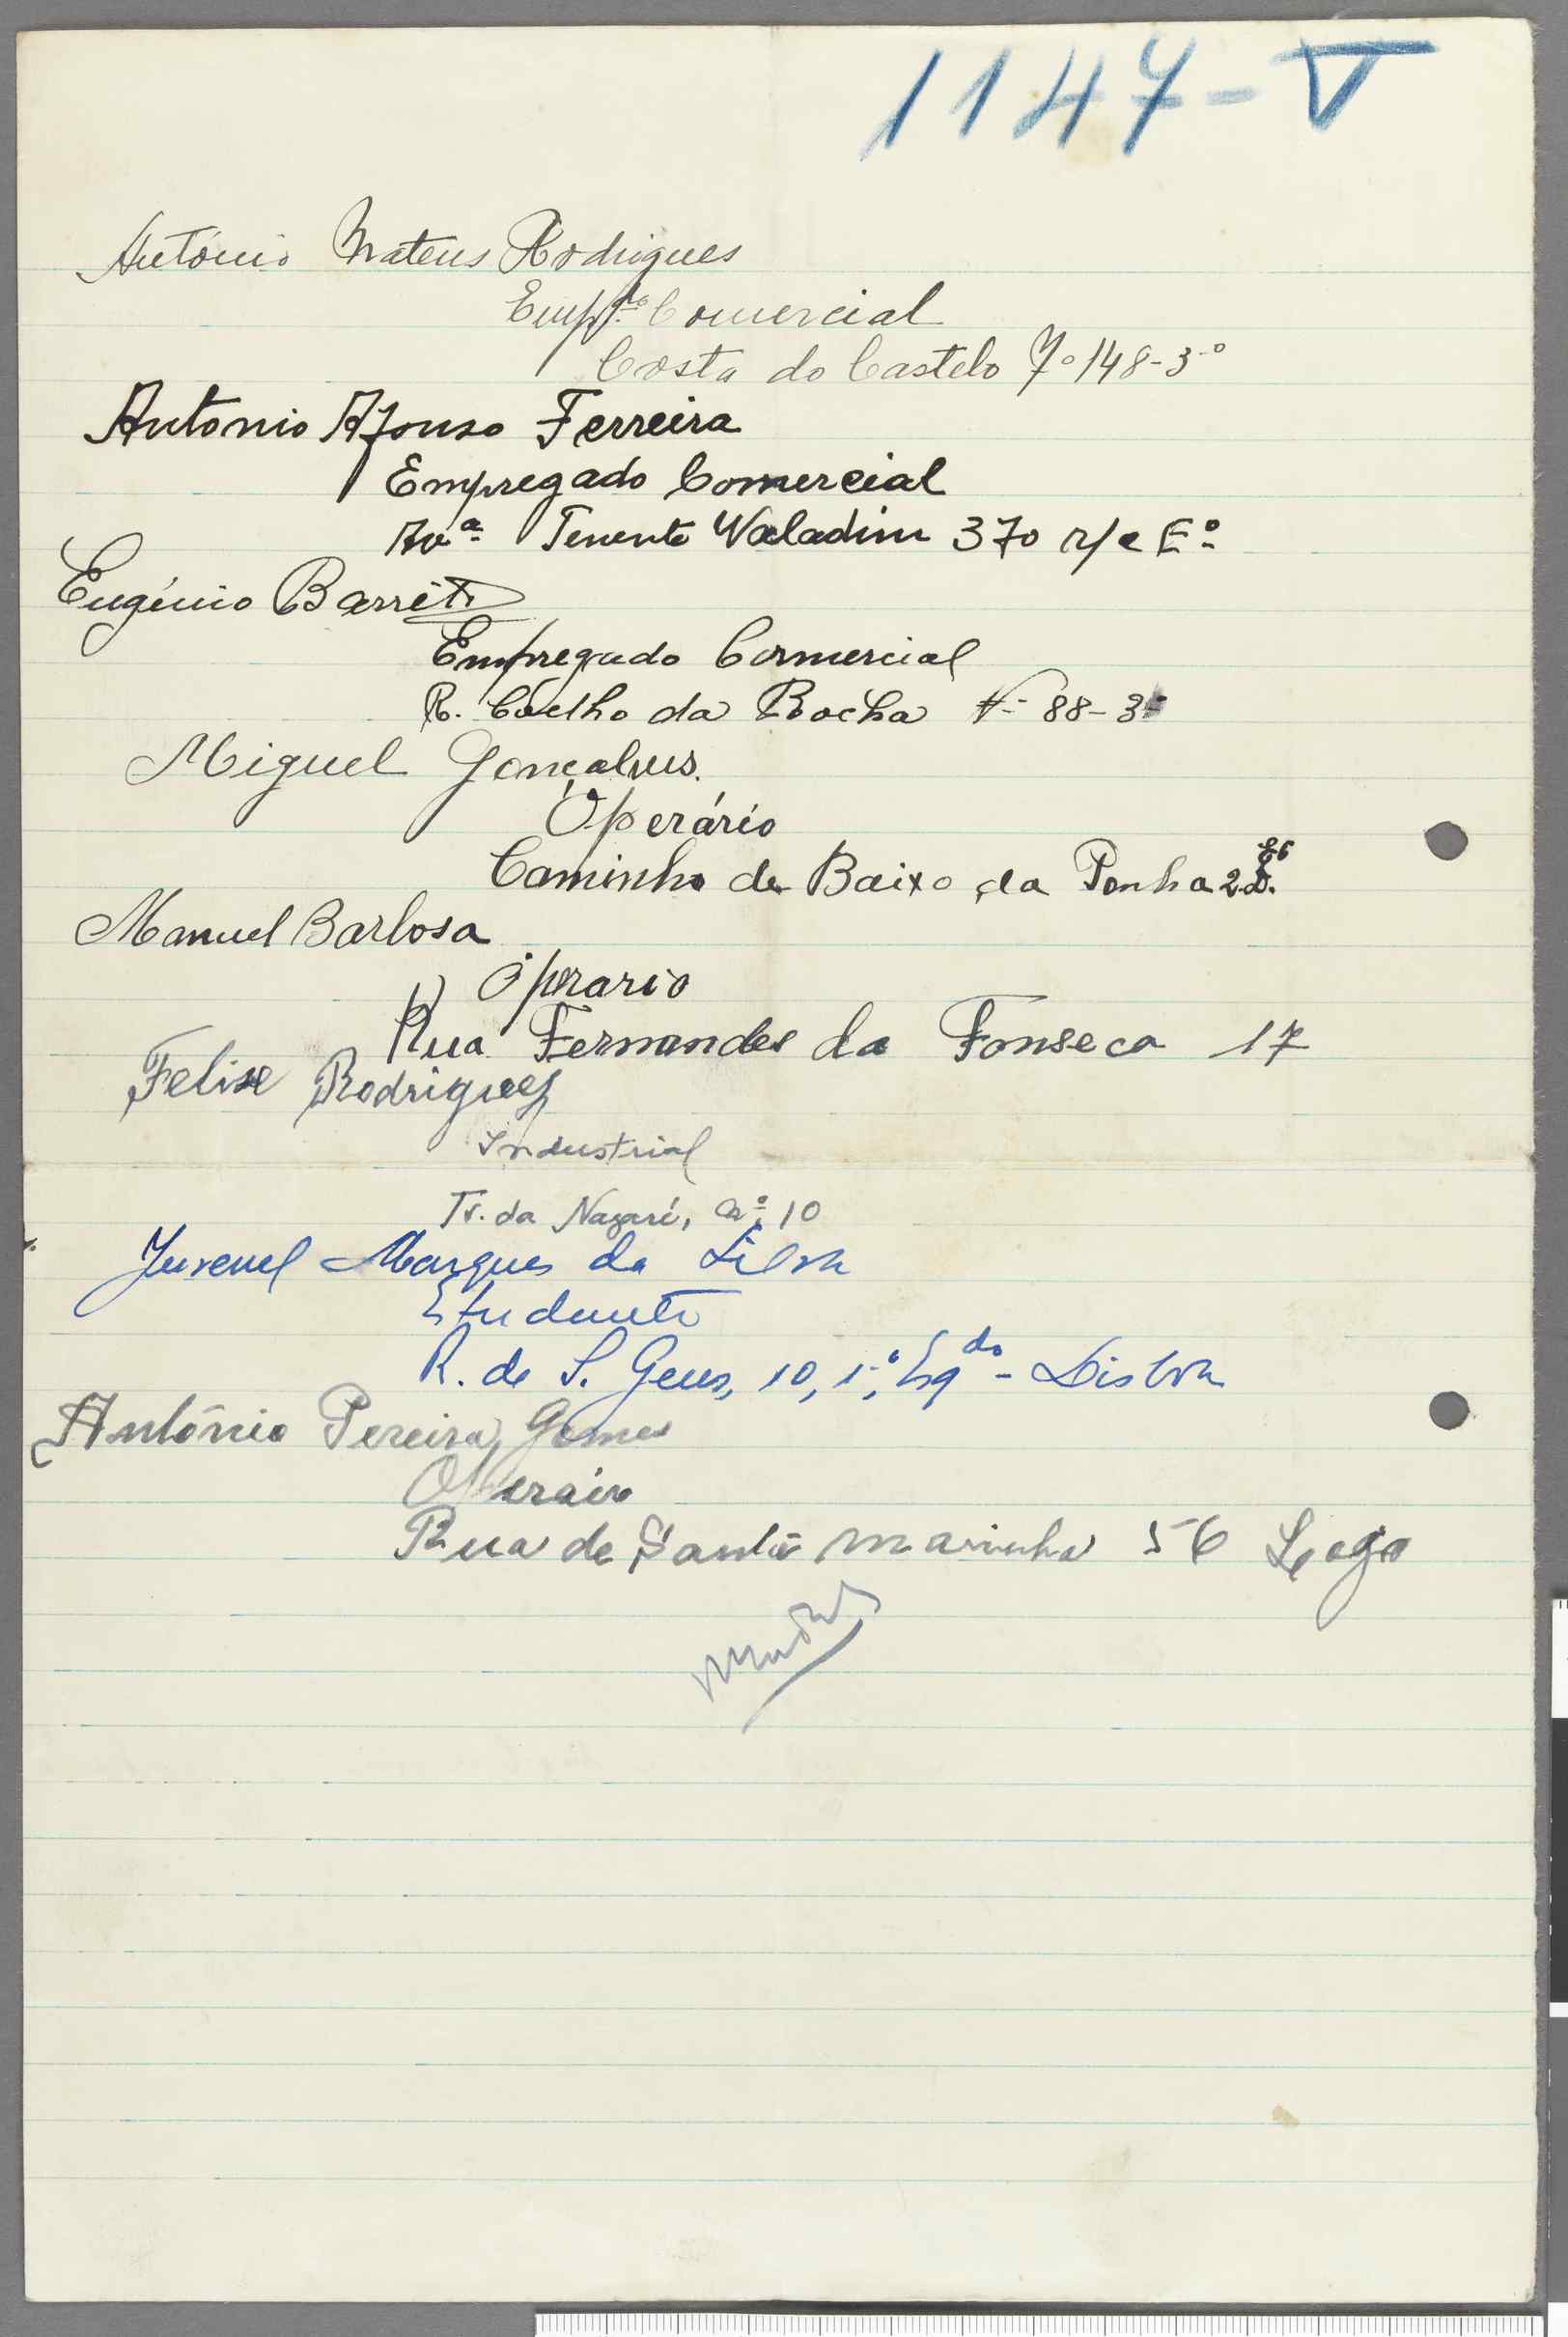 1147-V
António Mateus Rodrigues
Emp.do Comercial
Costa do Castelo 7º 148-3º
Antonio Afonso Ferreira
Empregado Comercial
Avª Tenente Valadim 370 r/c Eº
Eugénio Barreto
Empregado Comercial
R. Coelho da Rocha Nº 88-3º
Miguel Gonçalves.
Operário
Caminho de Baixo da Penha
Manuel Barbosa
Operario
Rua Fernandes da Fonseca 17
Felise Rodrigues
Industrial
Tv. da Nazaré, nº 10
Juvenel Marques da Silva
Estudante
R. de S. Gens, 10, 1º, Esqdo - Lisboa
António Pereira Gomes
Operaio
Rua de Santa marinha 56 Loga